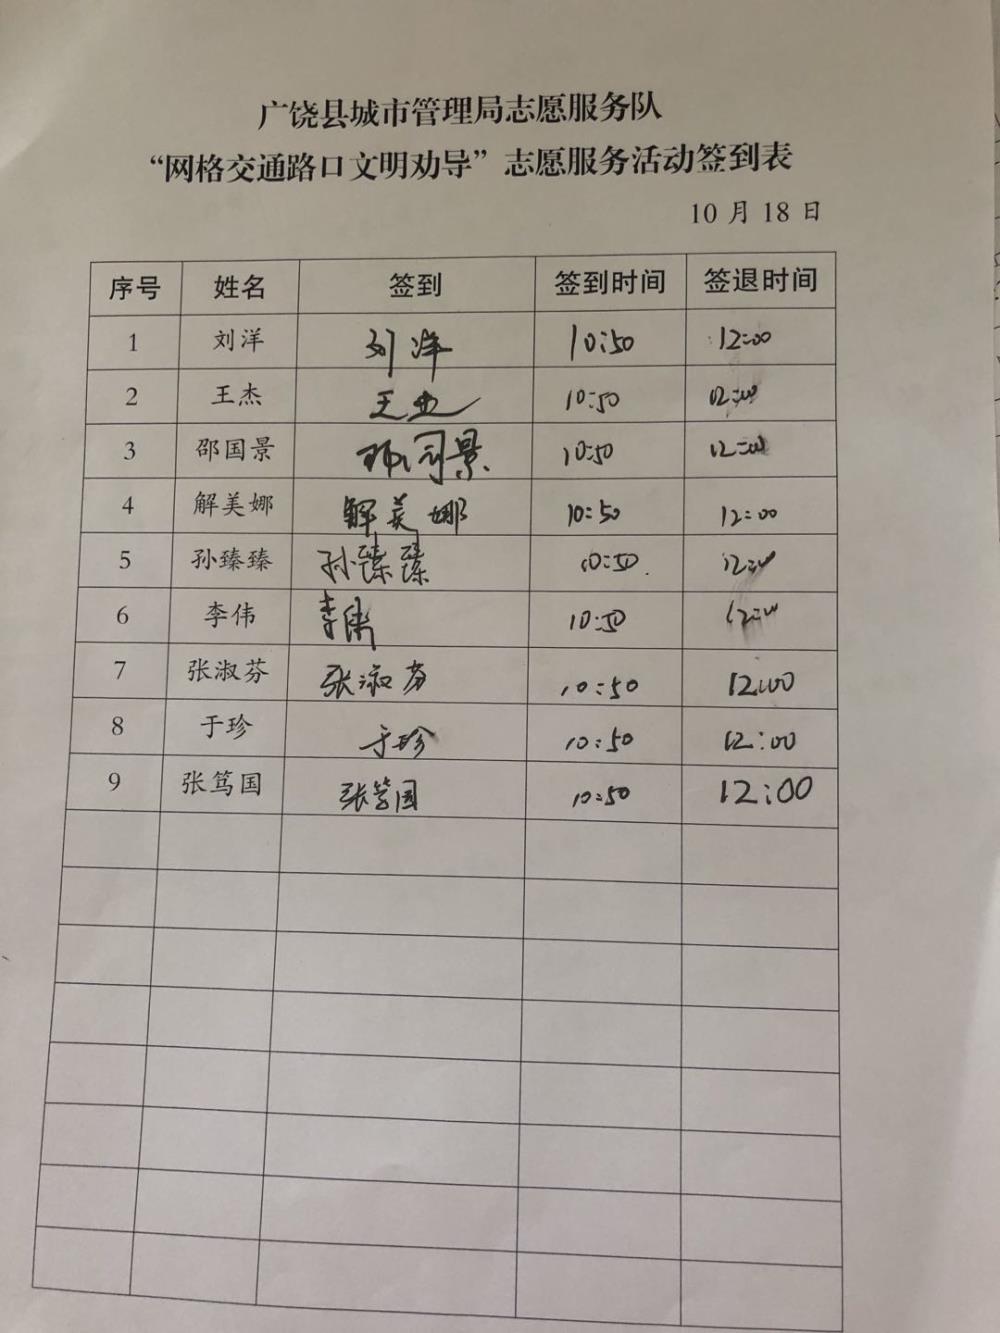 广饶县城市管理局志愿服务队
“网格交通路口文明劝导”志愿服务活动签到表
10 月 18 日
序号 姓名 签到 签到时间 签退时间
1 刘洋 刘洋 10:50 12:00
2 王杰 王杰 10:50 12:00
3 邵国景 邵国景 10:50 12:00
4 解美娜 解美娜 10:50 12:00
5 孙臻臻 孙臻臻 10:50 12:00
6 李伟 李伟 10:50 12:00
7 张淑芬 张淑芬 10:50 12:00
8 于珍 于珍 10:50 12:00
9 张笃国 张笃国 10:50 12:00